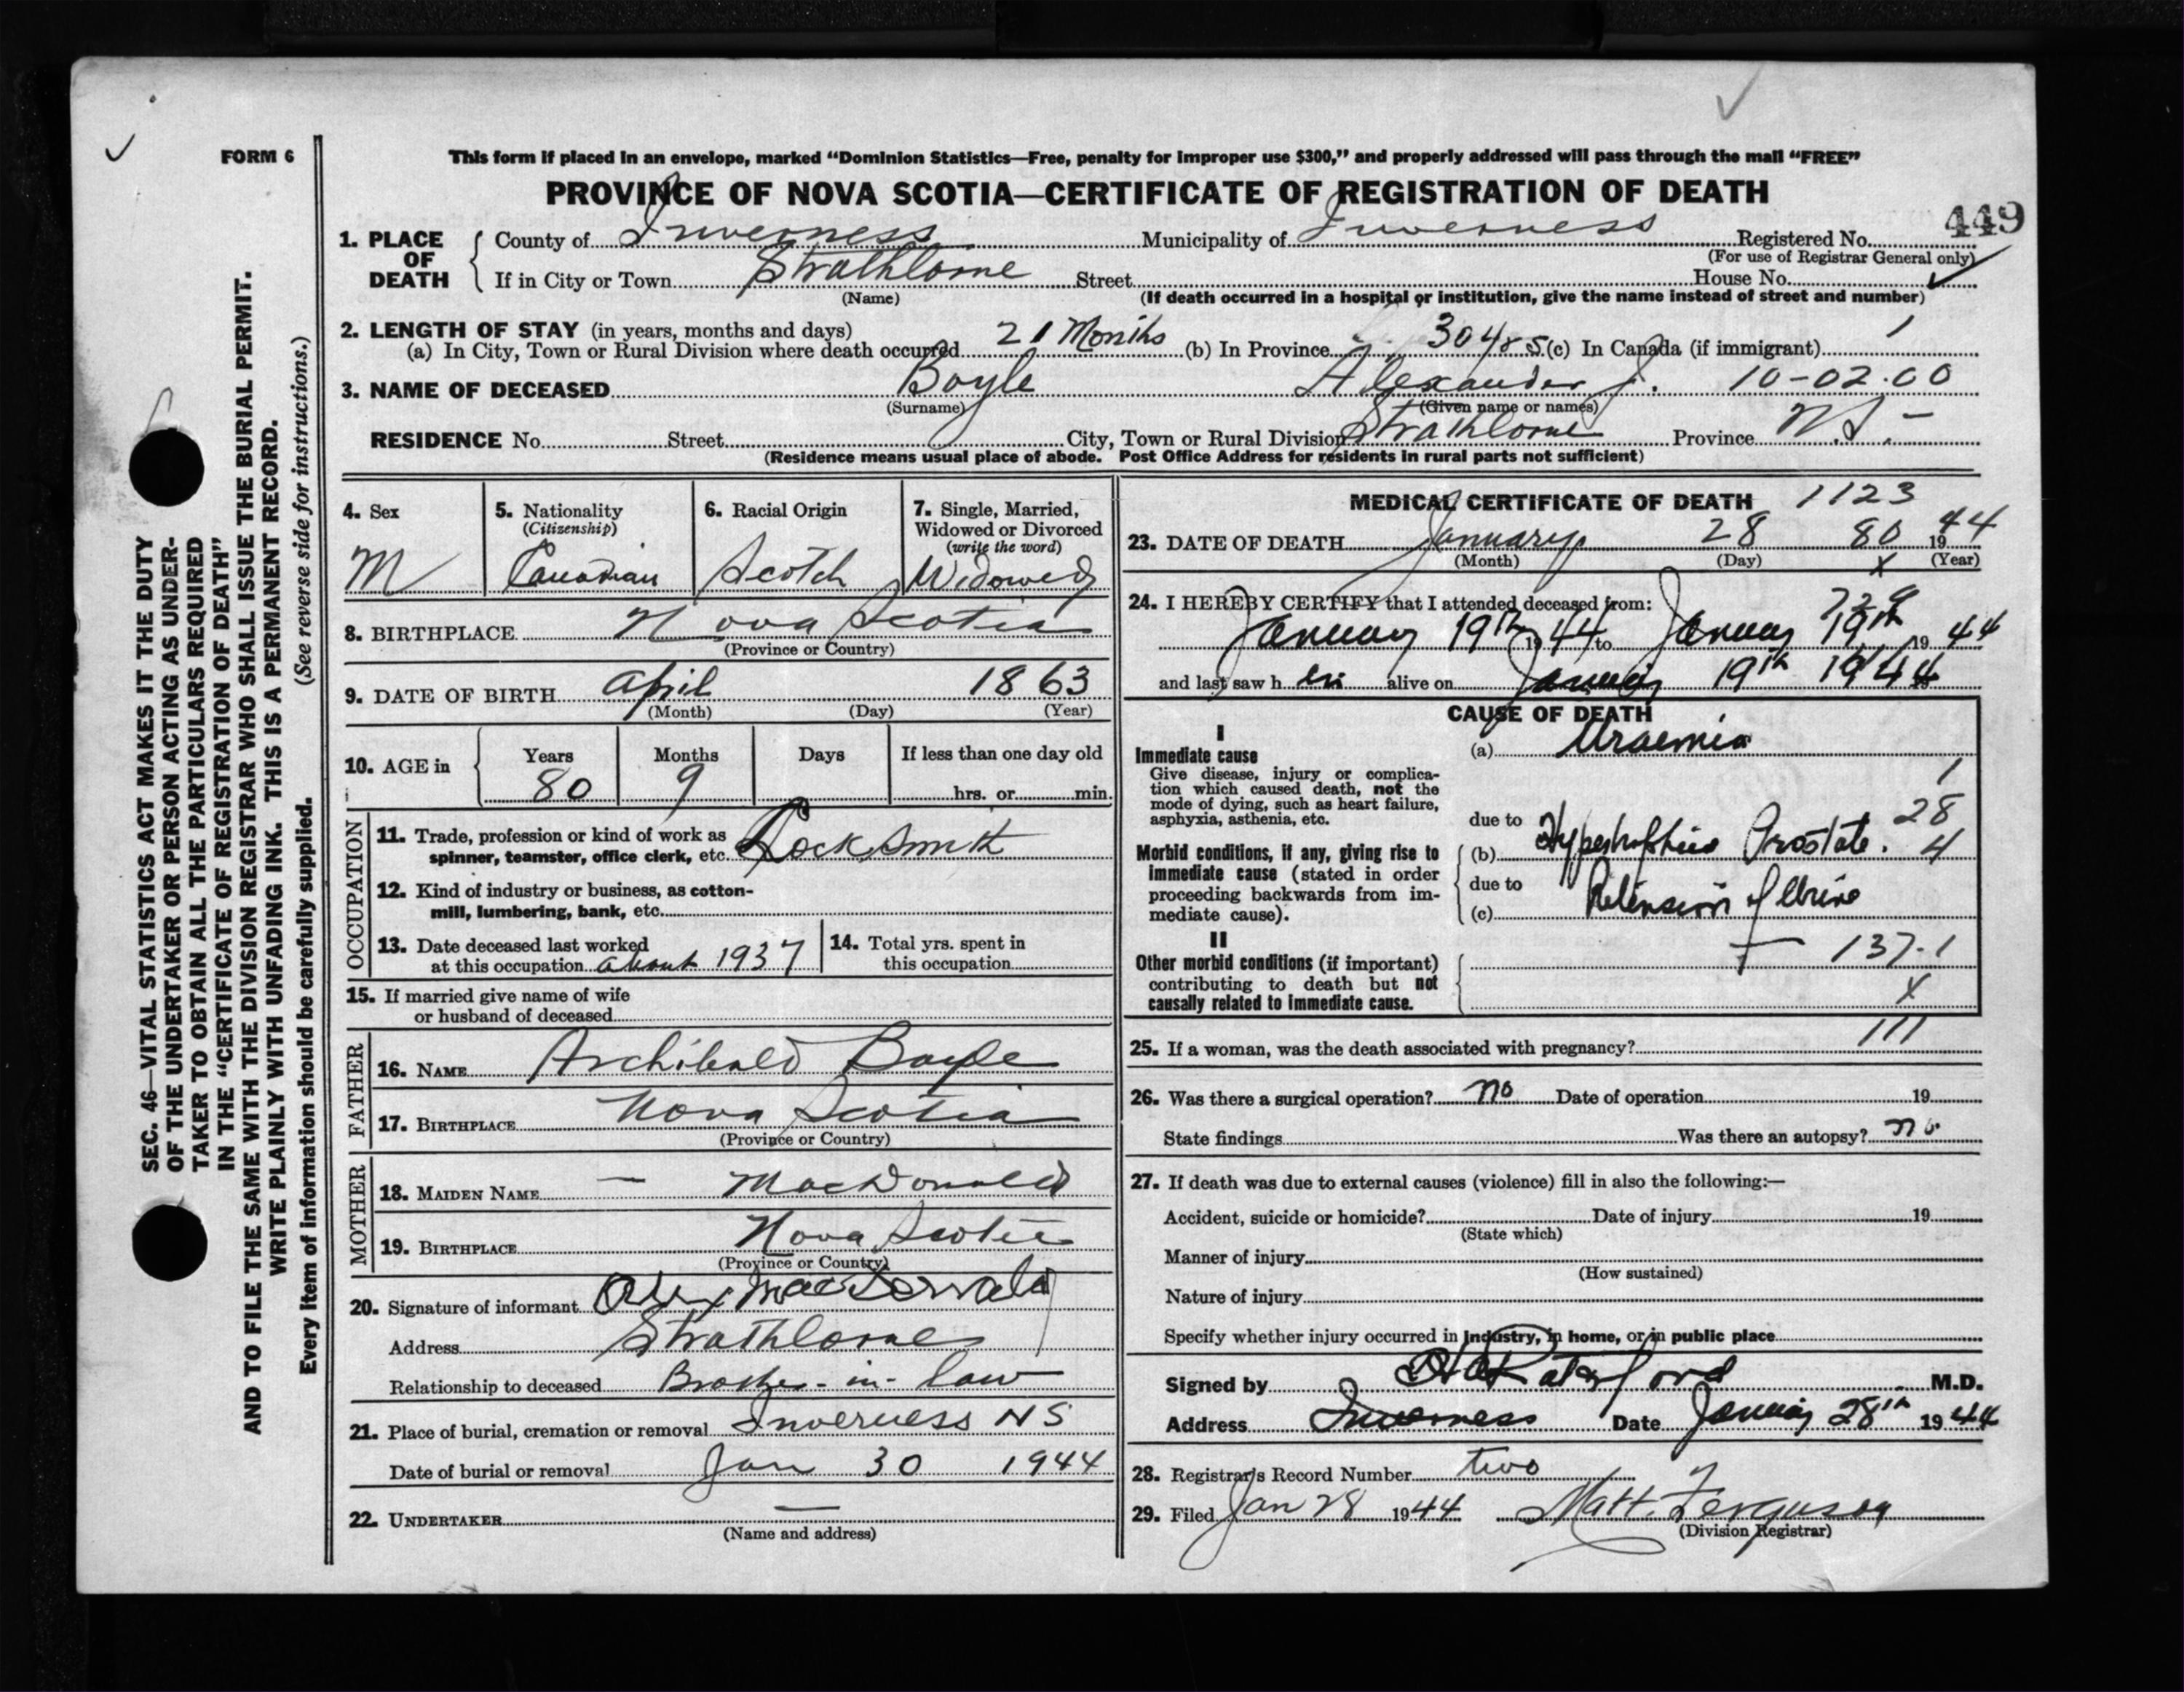 FORM 6
This form if placed in an envelope, marked “Dominion Statistics—Free, penalty for improper use $300,” and properly addressed will pass through the mail “FREE”
PROVINCE OF NOVA SCOTIA—CERTIFICATE OF REGISTRATION OF DEATH
449
1. PLACE OF DEATH County of Inverness Municipality of Inverness Registered No.
(For use of Registrar General only)
If in City or Town Strathlorne Street House No.
(Name) (If death occurred in a hospital or institution, give the name instead of street and number)
2. LENGTH OF STAY (in years, months and days)
(a) In City, Town or Rural Division where death occurred 21 Months (b) In Province (c) In Canada (if immigrant) 1
3. NAME OF DECEASED Boyle Alexander J. 10-02.00
(Surname) (Given name or names)
RESIDENCE No. Street City, Town or Rural Division Strathlorne Province N.S.-
(Residence means usual place of abode. Post Office Address for residents in rural parts not sufficient)
4. Sex M
5. Nationality (Citizenship) Canadian
6. Racial Origin Scotch
7. Single, Married, Widowed or Divorced (write the word) Widowed
8. BIRTHPLACE Nova Scotia
(Province or Country)
9. DATE OF BIRTH April 1863
(Month) (Day) (Year)
10. AGE in Years Months Days If less than one day old
80 9 hrs. or min.
OCCUPATION
11. Trade, profession or kind of work as
spinner, teamster, office clerk, etc. Locksmith
12. Kind of industry or business, as cotton-
mill, lumbering, bank, etc.
13. Date deceased last worked
at this occupation about 1937
14. Total yrs. spent in
this occupation
15. If married give name of wife
or husband of deceased
FATHER
16. NAME Archibald Boyle
17. BIRTHPLACE Nova Scotia
(Province or Country)
MOTHER
18. MAIDEN NAME — MacDonald
19. BIRTHPLACE Nova Scotia
(Province or Country)
20. Signature of informant Alex MacDonald
Address Strathlorne
Relationship to deceased Brother-in-law
21. Place of burial, cremation or removal Inverness NS
Date of burial or removal Jan 30 1944
22. UNDERTAKER —
(Name and address)
MEDICAL CERTIFICATE OF DEATH 1123
23. DATE OF DEATH January 28 80 1944
(Month) (Day) x (Year)
24. I HEREBY CERTIFY that I attended deceased from:
January 19th 1944 to January 19th 1944
and last saw h im alive on January 19th 1944
CAUSE OF DEATH
I
Immediate cause (a) Uraemia
Give disease, injury or complica-
tion which caused death, not the
mode of dying, such as heart failure,
asphyxia, asthenia, etc.
1
28
4
due to
Morbid conditions, if any, giving rise to
immediate cause (stated in order
proceeding backwards from im-
mediate cause).
(b) Hypertrophied Prostate.
due to
(c) Retension of Urine
II
Other morbid conditions (if important)
contributing to death but not
causally related to immediate cause.
137-1
x
25. If a woman, was the death associated with pregnancy? 111
26. Was there a surgical operation? no Date of operation 19
State findings Was there an autopsy? no.
27. If death was due to external causes (violence) fill in also the following:—
Accident, suicide or homicide? Date of injury 19
(State which)
Manner of injury
(How sustained)
Nature of injury
Specify whether injury occurred in industry, in home, or in public place
Signed by Ratchford M.D.
Address Inverness Date January 28th 1944
28. Registrar's Record Number two
29. Filed Jan 28 1944 Matt. Ferguson
(Division Registrar)
SEC. 46—VITAL STATISTICS ACT MAKES IT THE DUTY
OF THE UNDERTAKER OR PERSON ACTING AS UNDER-
TAKER TO OBTAIN ALL THE PARTICULARS REQUIRED
IN THE “CERTIFICATE OF REGISTRATION OF DEATH”
AND TO FILE THE SAME WITH THE DIVISION REGISTRAR WHO SHALL ISSUE THE BURIAL PERMIT.
WRITE PLAINLY WITH UNFADING INK. THIS IS A PERMANENT RECORD.
Every item of information should be carefully supplied. (See reverse side for instructions.)